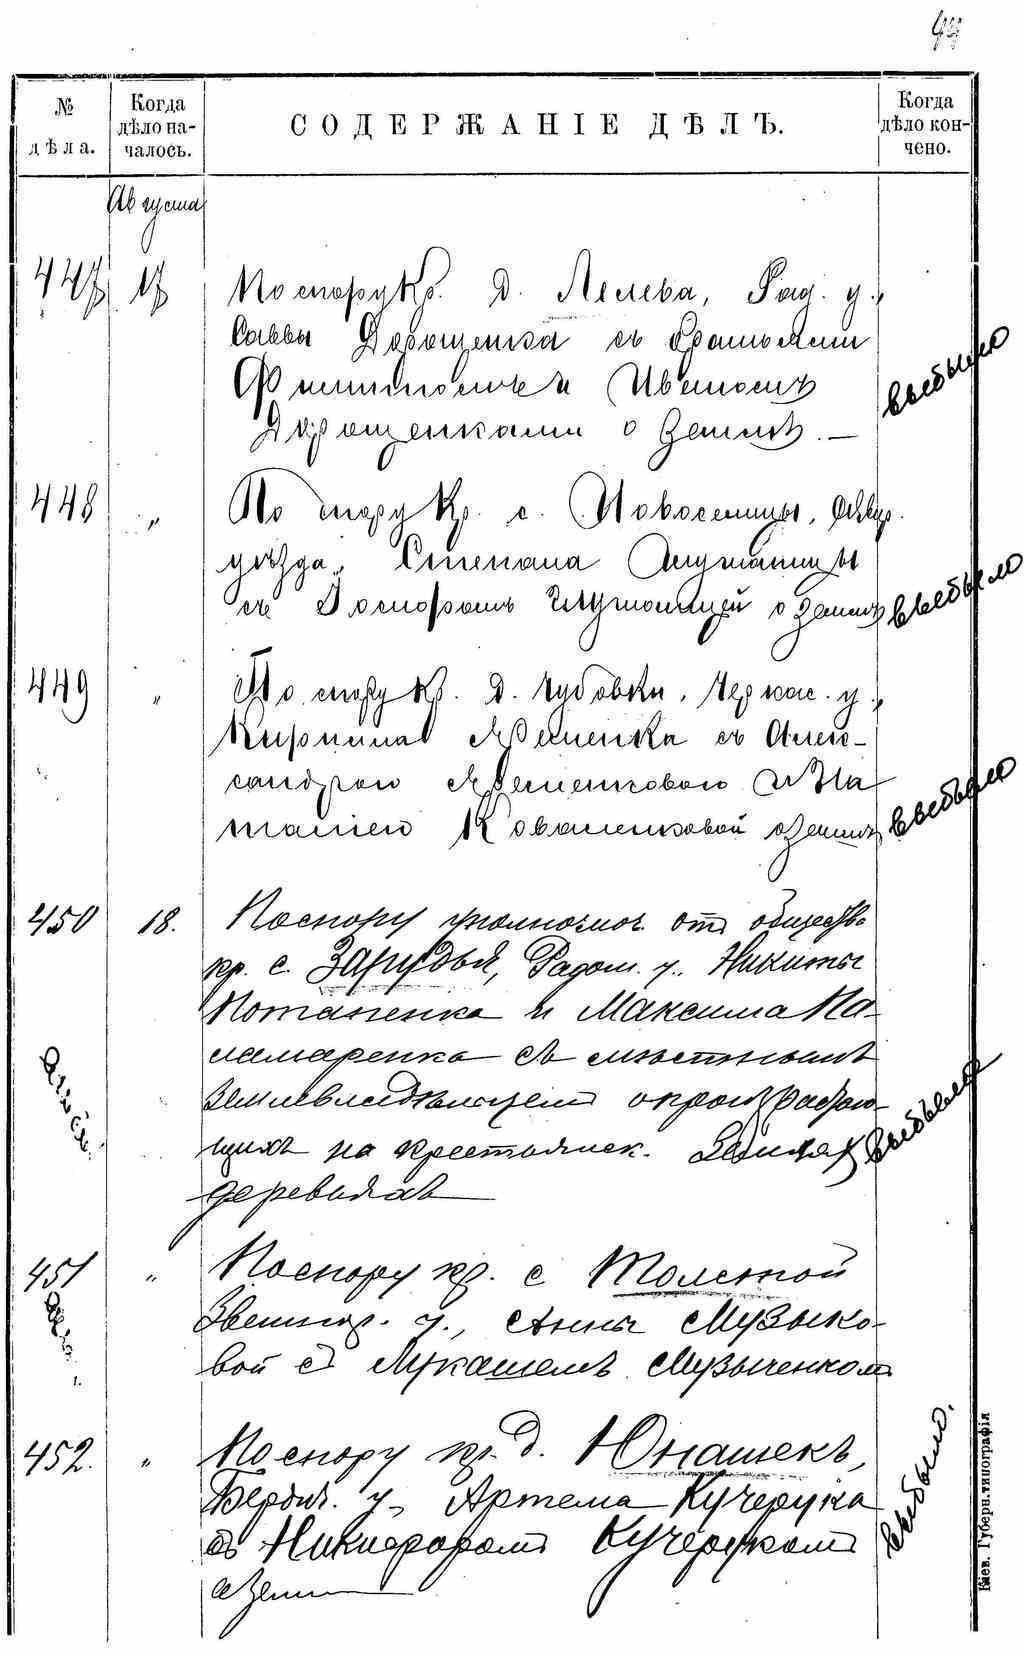 № дѣла.
Когда дѣло началось.
СОДЕРЖАНІЕ ДѢЛЪ.
Когда дѣло кончено.
Августа
447 17 По спору Кр. д. Лелева, Рад. у.,
Саввы Дорошенка съ братьями
Филиппомъ и Ивномъ
Дорошенками о землѣ. —
выбыло
448 „ По спору Кр. с. Новоселицы,
уѣзда, Степана
съ о землѣ
выбыло
449 „ По спору Кр. д. Чубовки, Черкас. у.,
Кирилла Яременка съ Алек-
сандрою Яременковою и На
талиею Коваленковой о землѣ
выбыло
450 18. По спору уполномоч. отъ общества
кр. с. Зарудья, Радом. у., Никиты
Потапенка и Максима Па-
ламаренка съ мѣстнымъ
землевладѣльцемъ о произрастаю-
щихъ на крестьянск. земляхъ
деревьяхъ
выбыло
451 „ По спору кр. с Толстой
Звениг. у., Анны Музыко-
вой съ Лукашемъ Музыченкомъ
452. „ По спору кр. д. Юнашекъ,
Бердич. у., Артема Кучерука
съ Никифоромъ Кучерукомъ
о земл
выбыло.
Кіев. Губерн. типографія